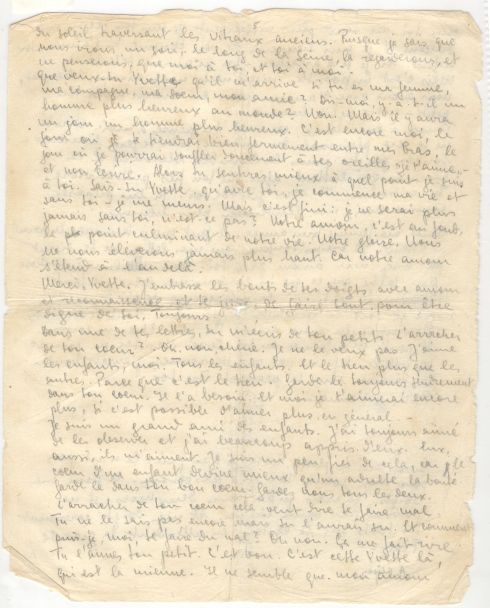 5
du soleil traversant les vitraux anciens. Puisque je sais que
nous irons, un soir, le long de la Seine, la regarderons, et
ne penserons, que moi à toi et toi à moi.
Que veux-tu Yvette qu'il m'arrive si tu es ma femme,
ma compagne, ma soeur, mon amie? Dis-moi, y-a-t-il un
homme plus heureux au monde? Non. Mais il y aura
un jour un homme plus heureux. C'est encore moi, le
jour où je te tiendrai bien fermement entre mes bras, le
jour où je pourrai souffler doucement à tes oreilles "je t'aime",
et non l'écrire. Alors tu sentiras mieux à quel point je suis
à toi. Sais-tu Yvette, qu'avec toi, je commence ma vie et
sans toi - je me meurs. Mais c'est fini: je ne serai plus
jamais sans toi, n'est-ce pas? Notre amour, c'est au fond,
le point culminant de notre vie. Notre gloire. Nous
ne nous élèverons jamais plus haut. Car notre amour
s'étend à l'au delà.
Merci, Yvette. J'embrasse les bouts de tes doigts avec amour
et reconnaissance et te jure de faire tout, pour être
digne de toi, toujours.
Dans une de tes lettres, tu m'écris de ton petit. L'arracher
de ton coeur? Oh, non chérie. Je ne le veux pas. J'aime
les enfants, moi. Tous les enfants. Et le tien plus que les
autres. Parce que c'est le tien. Garde le toujours
dans ton coeur. Il t'a besoin. Et moi je t'aimerai encore
plus, si c'est possible d'aimer plus, en général -
Je suis un grand ami des enfants. J'ai toujours aimé
de les observer et j'ai beaucoup appris d'eux. Eux,
aussi, ils m'aiment. Je suis un peu fier de cela, car le
coeur d'un enfant devine mieux qu'un adulte, la bonté
Garde le dans ton bon coeur. Garde nous tous les deux.
L'arracher de ton coeur cela veut dire te faire mal.
Tu ne le sais pas encore mais tu l'auras su. Et comment
puis-je, moi, te faire du mal? Oh non. Ça me fait rire.
Tu l'aimes ton petit. C'est bon. C'est cette Yvette là,
qui est la mienne. Il me semble que mon amour